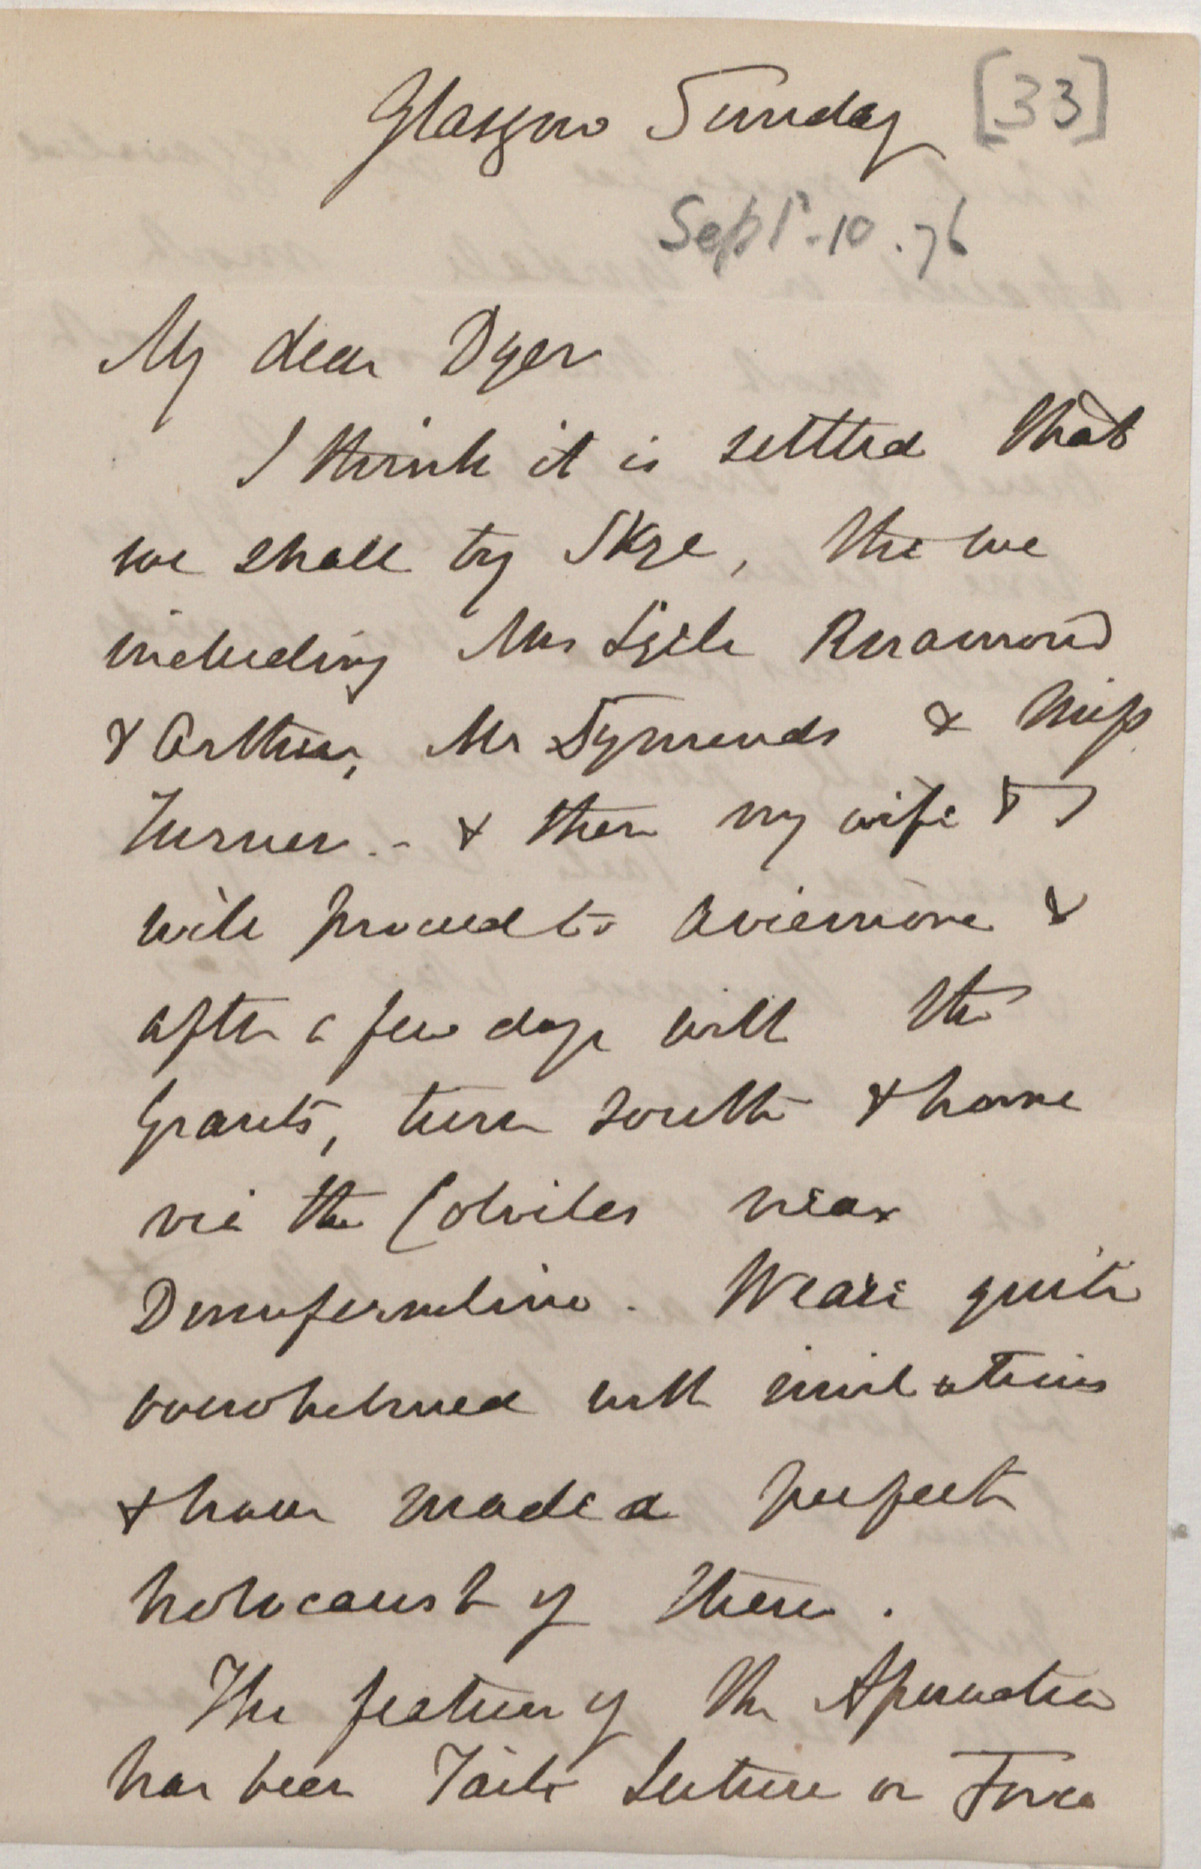 Glasgow Sunday [33]
Sept. 10. 76
My dear Dyer
I think it is settled that
we shall try Skye, the we
including Mrs Lyell Rosamond
& Arthur, Mr Symonds & Miss
Turner. - & then my wife & I
will proceed to Aviemore &
after a few days with the
Grants, turn south & home
via the Colviles near
Dunfermline. We are quite
overwhelmed with invitations
& have made a perfect
holocaust of them.
The feature of the Association
has been Taits Lecture on Force